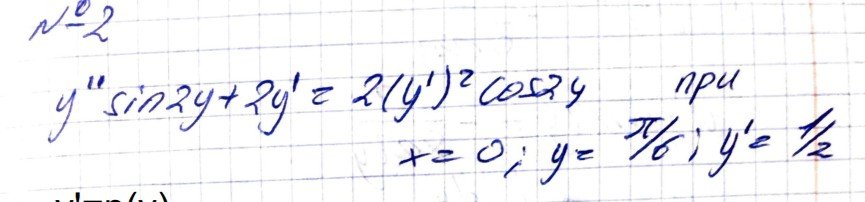 №2
y'' sin2y + 2y' = 2(y')² cos2y при
x = 0; y = π/6; y' = 1/2
y'=p(y)